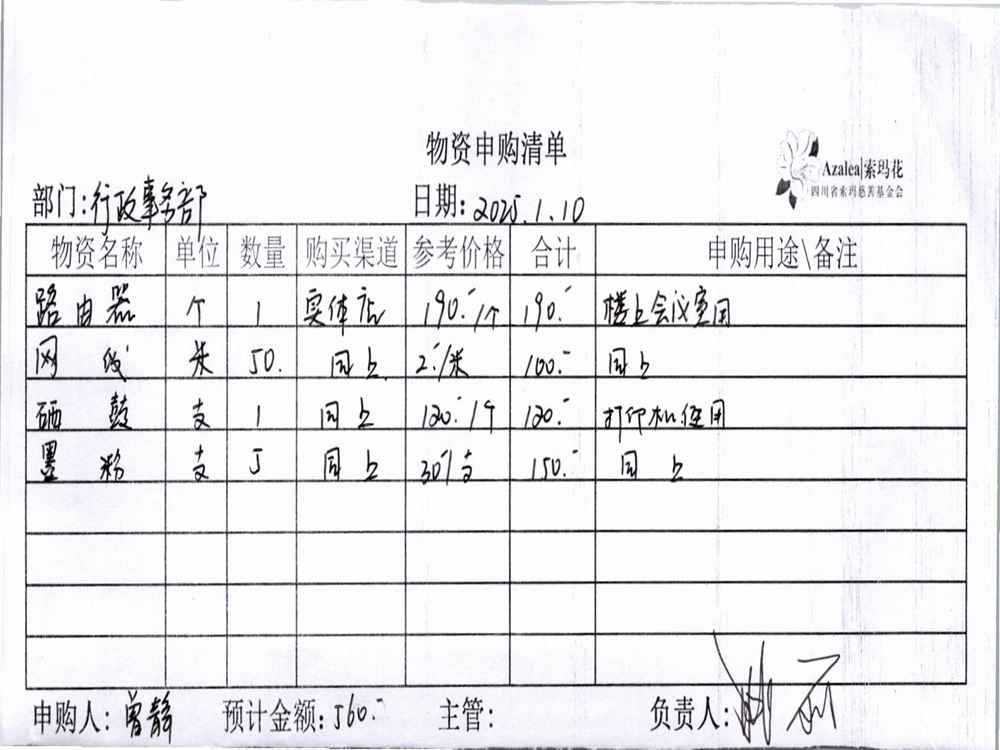 物资申购清单
Azalea|索玛花
四川省索玛慈善基金会
部门:行政事务部 日期:2025.1.10
物资名称 单位 数量 购买渠道 参考价格 合计 申购用途\备注
路由器 个 1 实体店 190.-/个 190.- 楼上会议室用
网线 米 50. 同上 2.-/米 100.- 同上
硒鼓 支 1 同上 120.-/个 120.- 打印机使用
墨粉 支 5 同上 30-/支 150.- 同上
申购人:曾静 预计金额:560.- 主管: 负责人: